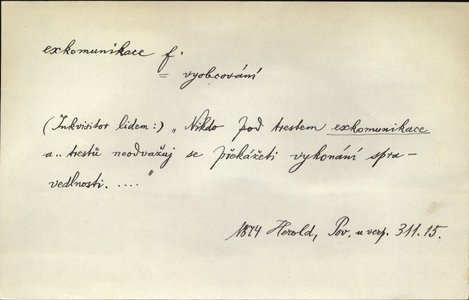 exkomunikace f.
vyobcování
(Inkvisitor lidem:) „Nikdo pod trestem exkomunikace
a.. trestů neodvažuj se překážeti vykonání spra-
vedlnosti. ...."
1874 Herold, Pov. u verš. 311.15.